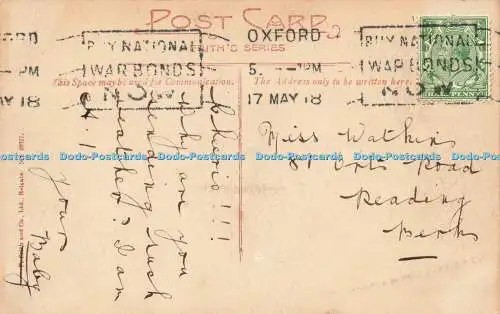 POST CARD
SMITH'S SERIES
OXFORD
BUY NATIONAL
WAR BONDS
NOW
5 - PM
17 MAY 18
BUY NATIONAL
WAR BONDS
NOW
PM
MAY 18
PENNY
This Space may be used for Communication.
The Address only to be written here.
Cheerio!!!
Why are you
sending such
weather? I am
Your
Baby
Miss Watkins
81 Orts Road
Reading
Berks
Dodo-Postcards Dodo-Postcards Dodo-Postcards Dodo-Postcards Dodo-Postcards Dodo-Postcards Dodo-Postcards